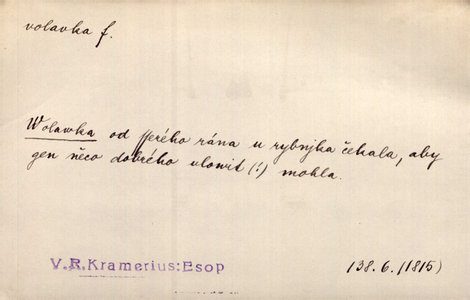 volavka f.
Wolawka od sserého rána u rybnjka čekala, aby
gen něco dobrého ulowit (!) mohla.
V.R.Kramerius:Esop
138.6.(1815)